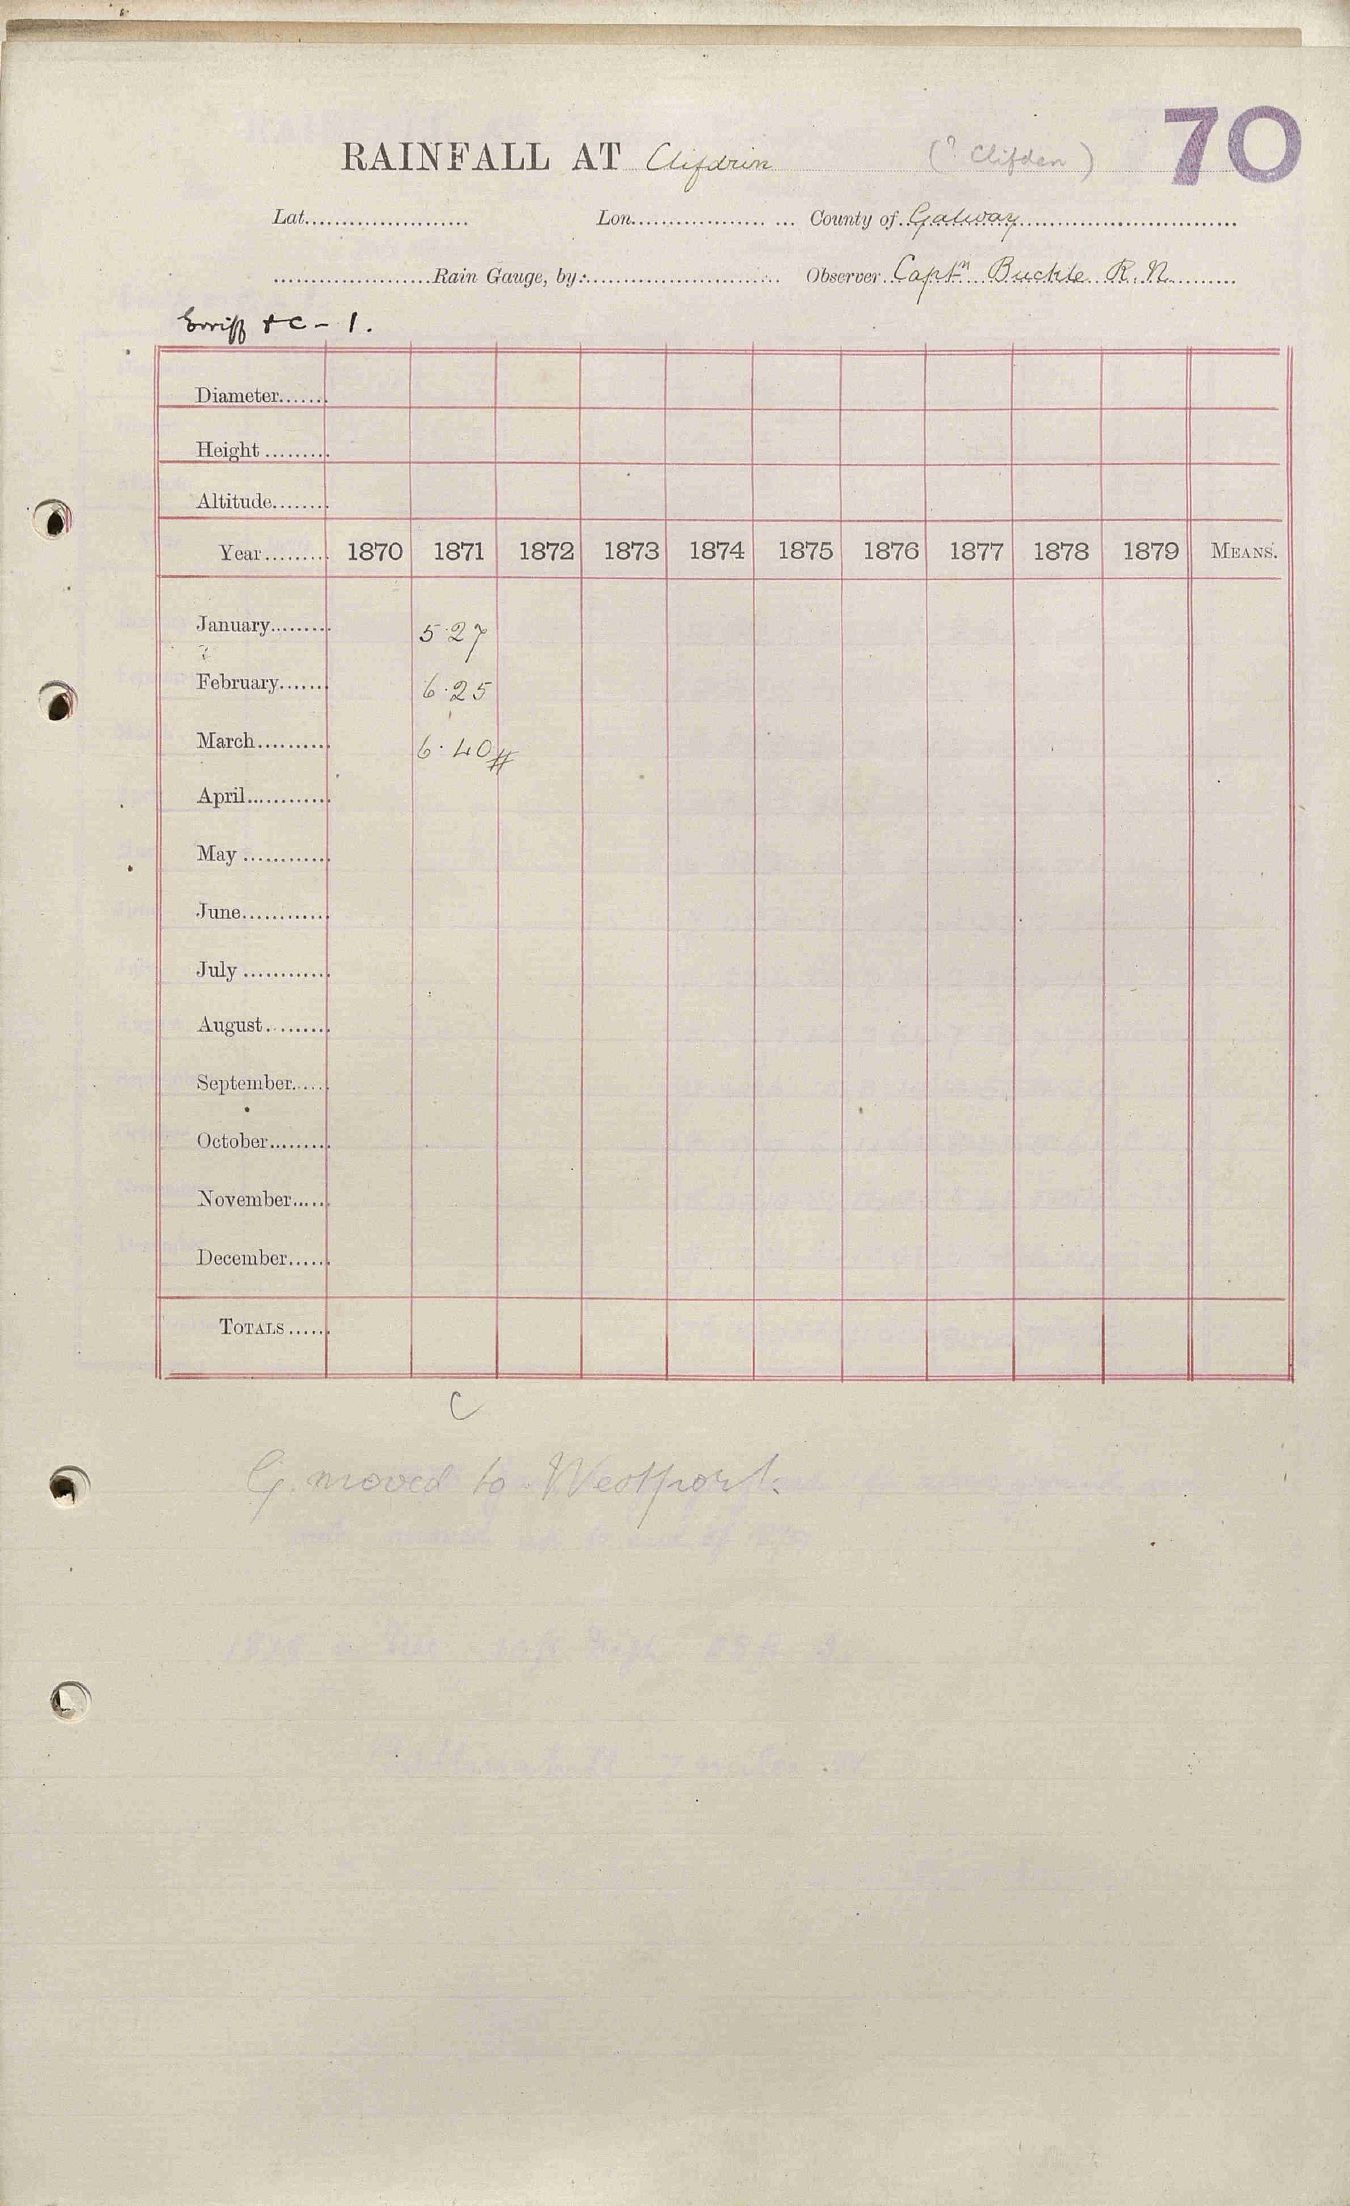 70
RAINFALL AT Clifdrin (? Clifden)
Lat. Lon. County of Galway
Rain Gauge, by: Observer Captn Buckle R.N.
Erriff & C - 1.
Diameter
Height
Altitude
Year 1870 1871 1872 1873 1874 1875 1876 1877 1878 1879 MEANS.
January 5.27
February 6.25
March 6.40#
April
May
June
July
August
September
October
November
December
TOTALS
C
G. moved to Westport.